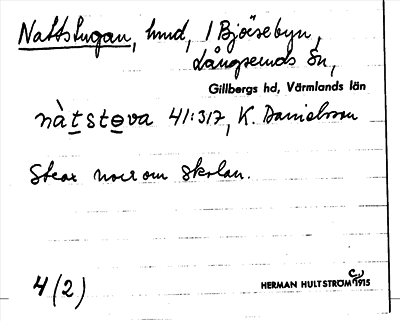 Nattstugan, hmd, / Bjöisebyn,
Långseruds Sn,
Gillbergs hd, Värmlands län
nàtstova 41:317, K. Danielsson
Strax norr om skolan.
4 (2)
HERMAN HULTSTRÖM 1915